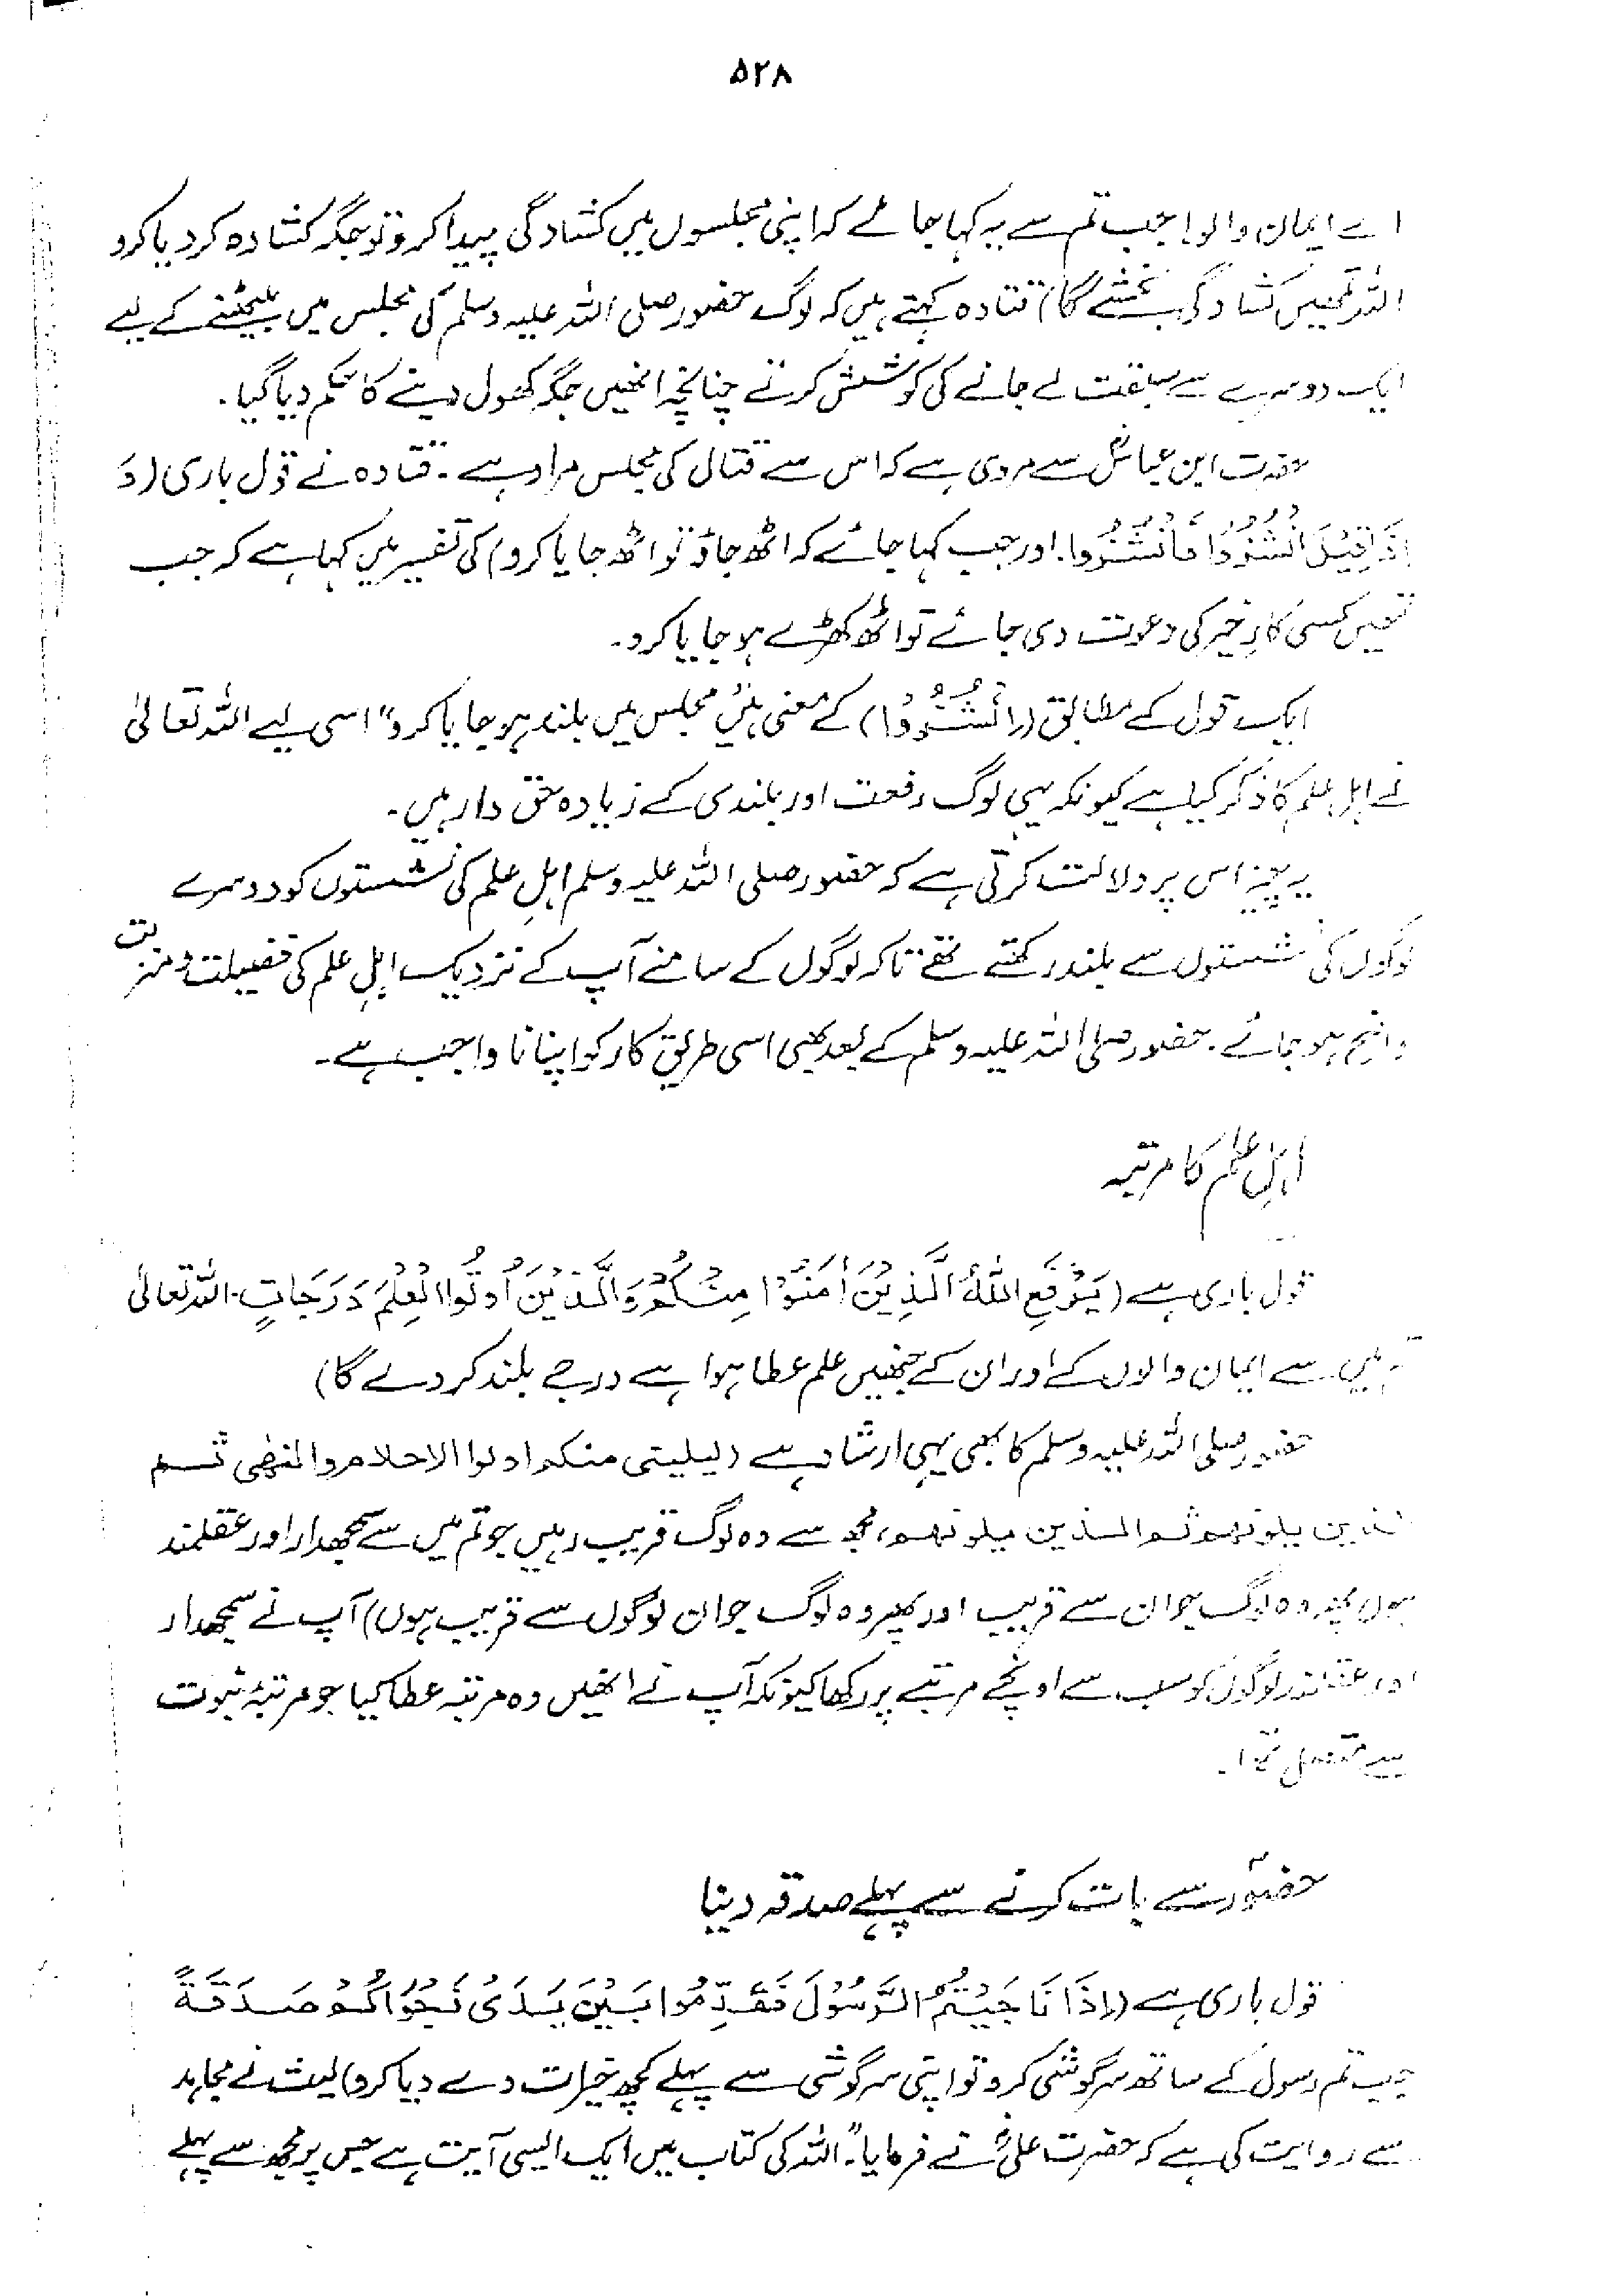 ۵۲۸
اے ایمان والو! جب تم سے یہ کہا جائے کہ اپنی مجلسوں میں کشادگی پیدا کرو تو جگہ کشادہ کر دیا کرو
اللہ تمھیں کشادگی بخشے گا) قتادہ کہتے ہیں کہ لوگ حضور صلی اللہ علیہ وسلم کی مجلس میں بیٹھنے کے لیے
ایک دوسرے سے سبقت لے جانے کی کوشش کرتے چنانچہ انھیں جگہ کھول دینے کا حکم دیا گیا۔
حضرت ابن عباسؓ سے مروی ہے کہ اس سے قتال کی مجلس مراد ہے۔ قتادہ نے قول باری (وَ
اِذَا قِیْلَ انْشُزُوْا فَانْشُزُوا۔ اور جب کہا جائے کہ اٹھ جاؤ تو اٹھ جایا کرو) کی تفسیر میں کہا ہے کہ جب
تمھیں کسی کارِ خیر کی دعوت دی جائے تو اٹھ کھڑے ہو جایا کرو۔
ایک قول کے مطابق (اُنْشُزُوْا) کے معنی ہیں "مجلس میں بلند ہو جایا کرو" اسی لیے اللہ تعالیٰ
نے اہل علم کا ذکر کیا ہے کیونکہ یہی لوگ رفعت اور بلندی کے زیادہ حق دار ہیں۔
یہ چیز اس پر دلالت کرتی ہے کہ حضور صلی اللہ علیہ وسلم اہلِ علم کی نشستوں کو دوسرے
لوگوں کی نشستوں سے بلند رکھتے تھے تاکہ لوگوں کے سامنے آپ کے نزدیک اہلِ علم کی فضیلت و منزلت
واضح ہو جائے۔ حضور صلی اللہ علیہ وسلم کے بعد بھی اسی طریق کار کو اپنانا واجب ہے۔
اہلِ علم کا مرتبہ
قول باری ہے (یَرْفَعِ اللّٰهُ الَّذِیْنَ اٰمَنُوْا مِنْکُمْ وَالَّذِیْنَ اُوْتُوا الْعِلْمَ دَرَجَاتٍ۔ اللہ تعالیٰ
تم میں سے ایمان والوں کے اور ان کے جنھیں علم عطا ہوا ہے درجے بلند کر دے گا)
حضور صلی اللہ علیہ وسلم کا بھی یہی ارشاد ہے (لیلیتی منکم اولوا الاحلام والنھٰی ثم
الذین یلونھم ثم الذین یلونھم، مجھ سے وہ لوگ قریب رہیں جو تم میں سے سمجھدار اور عقلمند
ہوں پھر وہ لوگ جو ان سے قریب اور پھر وہ لوگ جو ان لوگوں سے قریب ہوں) آپ نے سمجھدار
اور عقلمند لوگوں کو سب سے اونچے مرتبے پر رکھا کیونکہ آپ نے انھیں وہ مرتبہ عطا کیا جو مرتبۂ نبوت
سے متصل تھا۔
حضورؐ سے بات کرنے سے پہلے صدقہ دینا
قول باری ہے (اِذَا نَاجَیْتُمُ الرَّسُوْلَ فَقَدِّمُوا بَیْنَ یَدَیْ نَجْوَاکُمْ صَدَقَةً
جب تم رسول کے ساتھ سرگوشی کرو تو اپنی سرگوشی سے پہلے کچھ خیرات دے دیا کرو) لیث نے مجاہد
سے روایت کی ہے کہ حضرت علیؓ نے فرمایا: "اللہ کی کتاب میں ایک ایسی آیت ہے جس پر مجھ سے پہلے